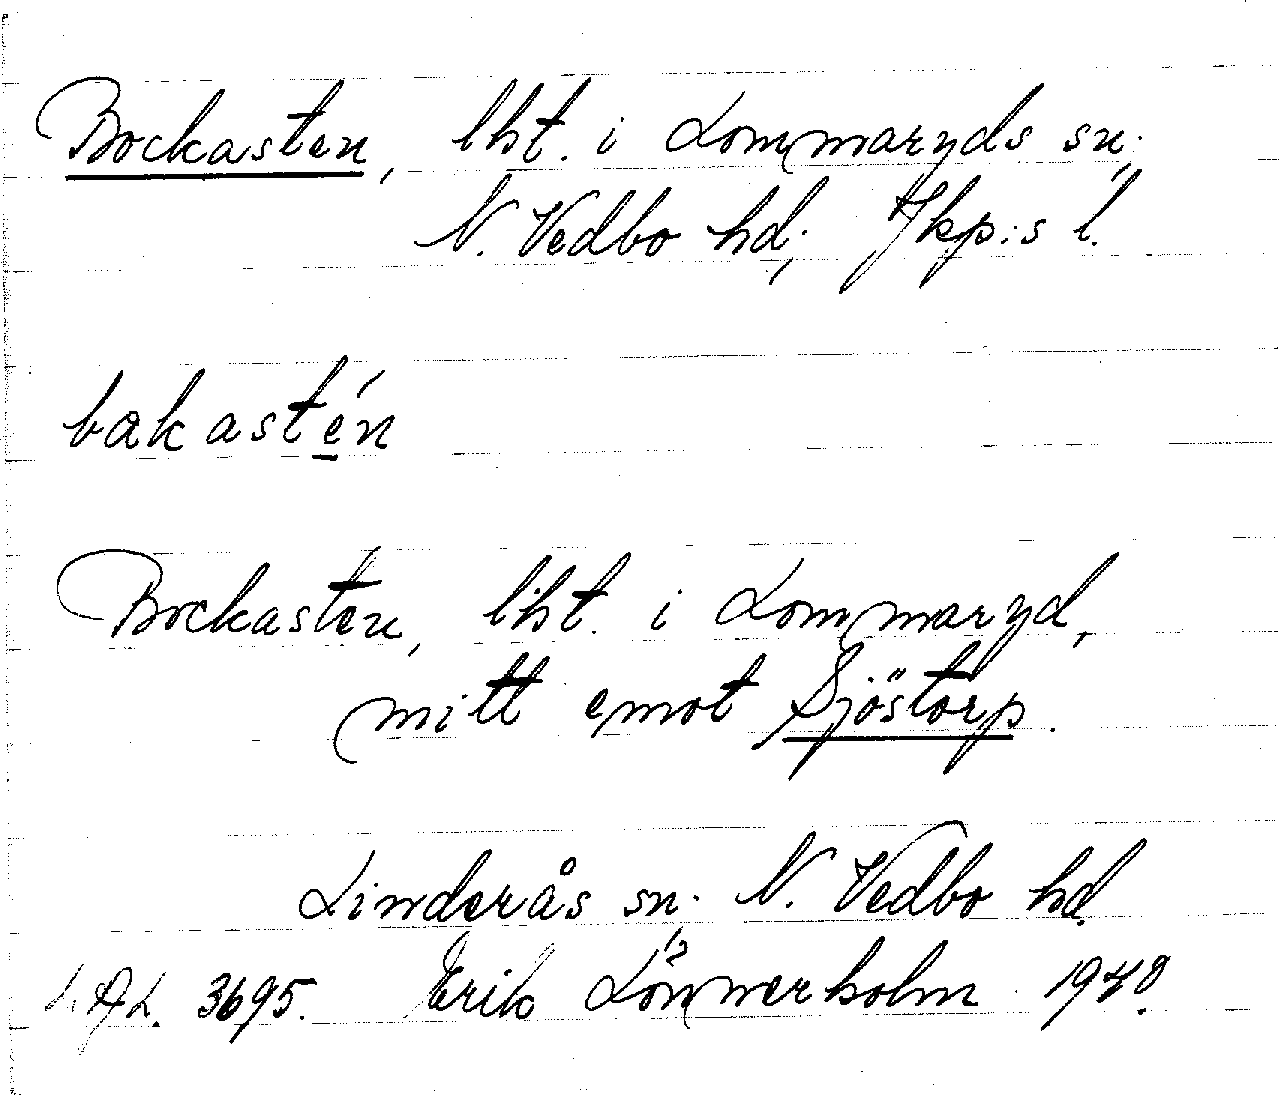 Bockasten, lht. i Lommaryds sn;
N. Vedbo hd; Jkp:s l.
bakastén
Bockasten, lht. i Lommaryd,
mitt emot Sjöstorp.
Linderås sn. N. Vedbo hd.
3695. Erik Lönnerholm 1940.